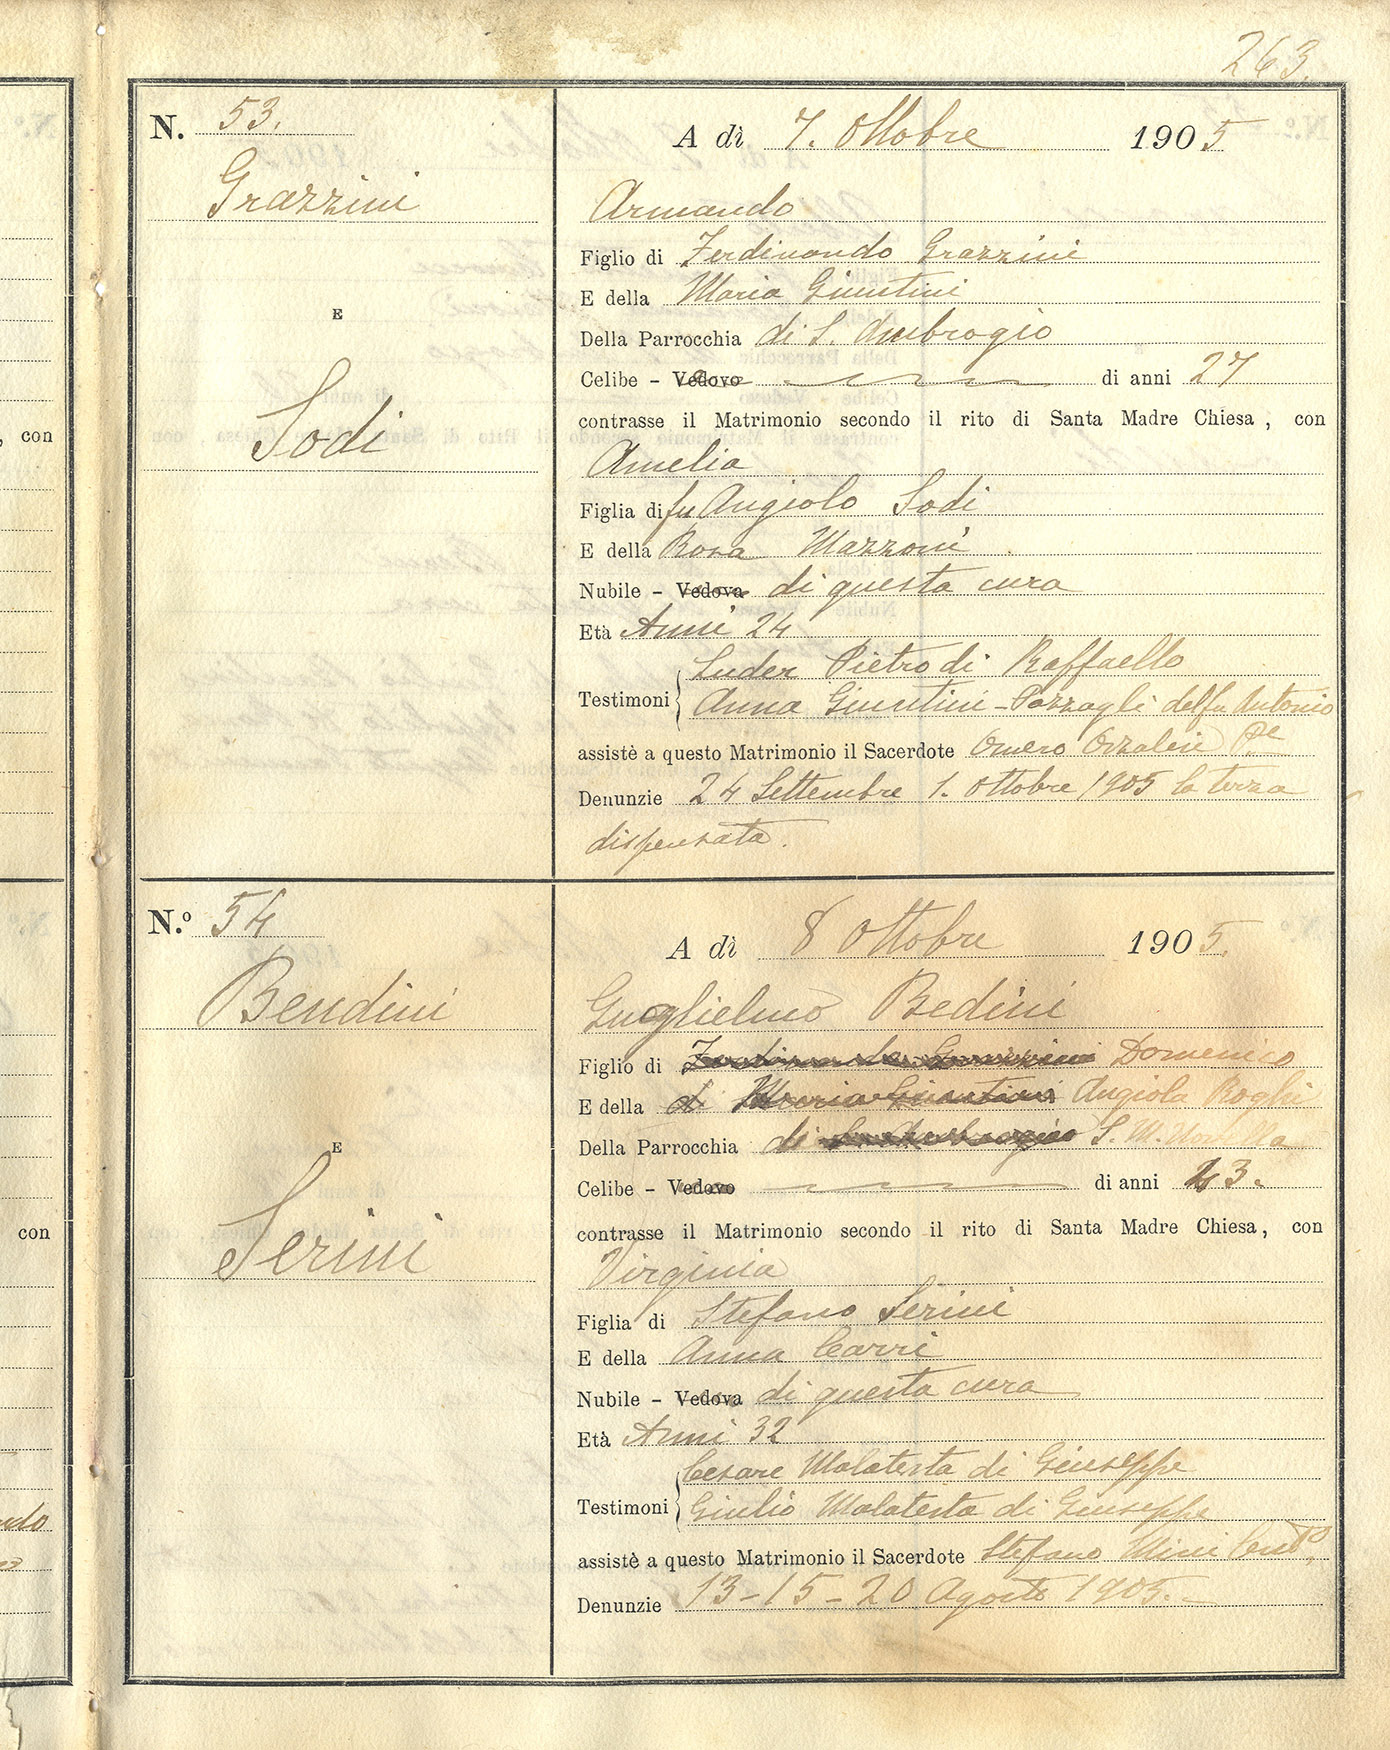 263.
N. 53.
Grazzini
E
Sodi
A dì 7. Ottobre 1905
Armando
Figlio di Ferdinando Grazzini
E della Maria Giuntini
Della Parrocchia di S. Ambrogio
Celibe - Vedovo di anni 27
contrasse il Matrimonio secondo il rito di Santa Madre Chiesa, con
Amelia
Figlia di fu Angiolo Sodi
E della Rosa Mazzoni
Nubile - Vedova di questa cura
Età Anni 24
Testimoni Luder Pietro di Raffaello
Anna Giuntini - Pazzagli del fu Antonio
assistè a questo Matrimonio il Sacerdote Omero Orzalesi
Denunzie 24 Settembre 1. Ottobre 1905 la terza
dispensata.
N.º 54
Bendini
E
Serini
A dì 8 Ottobre 1905.
Guglielmo Bedini
Figlio di Ferdinando Grazzini Domenico
E della di Maria Giuntini Angiola Roghi
Della Parrocchia di S. Ambrogio S. M. Novella
Celibe - Vedovo di anni 43.
contrasse il Matrimonio secondo il rito di Santa Madre Chiesa, con
Virginia
Figlia di Stefano Serini
E della Anna Carri
Nubile - Vedova di questa cura
Età Anni 32
Testimoni Cesare Malatesta di Giuseppe
Giulio Malatesta di Giuseppe
assistè a questo Matrimonio il Sacerdote Stefano Mini
Denunzie 13 - 15 - 20 Agosto 1905. -
, con
con